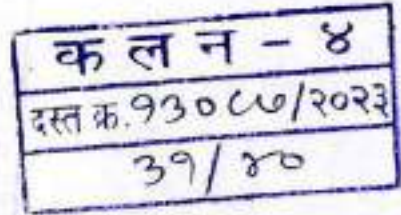 क ल न - ४
दस्त क्र. १३०८७/२०२३
३१/४०